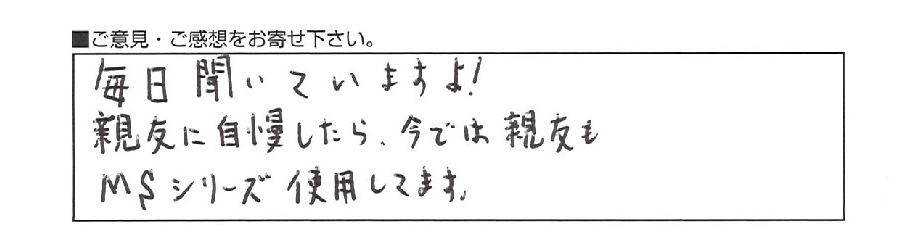 ■ご意見・ご感想をお寄せ下さい。
毎日聞いていますよ!
親友に自慢したら、今では親友も
MSシリーズ使用してます。